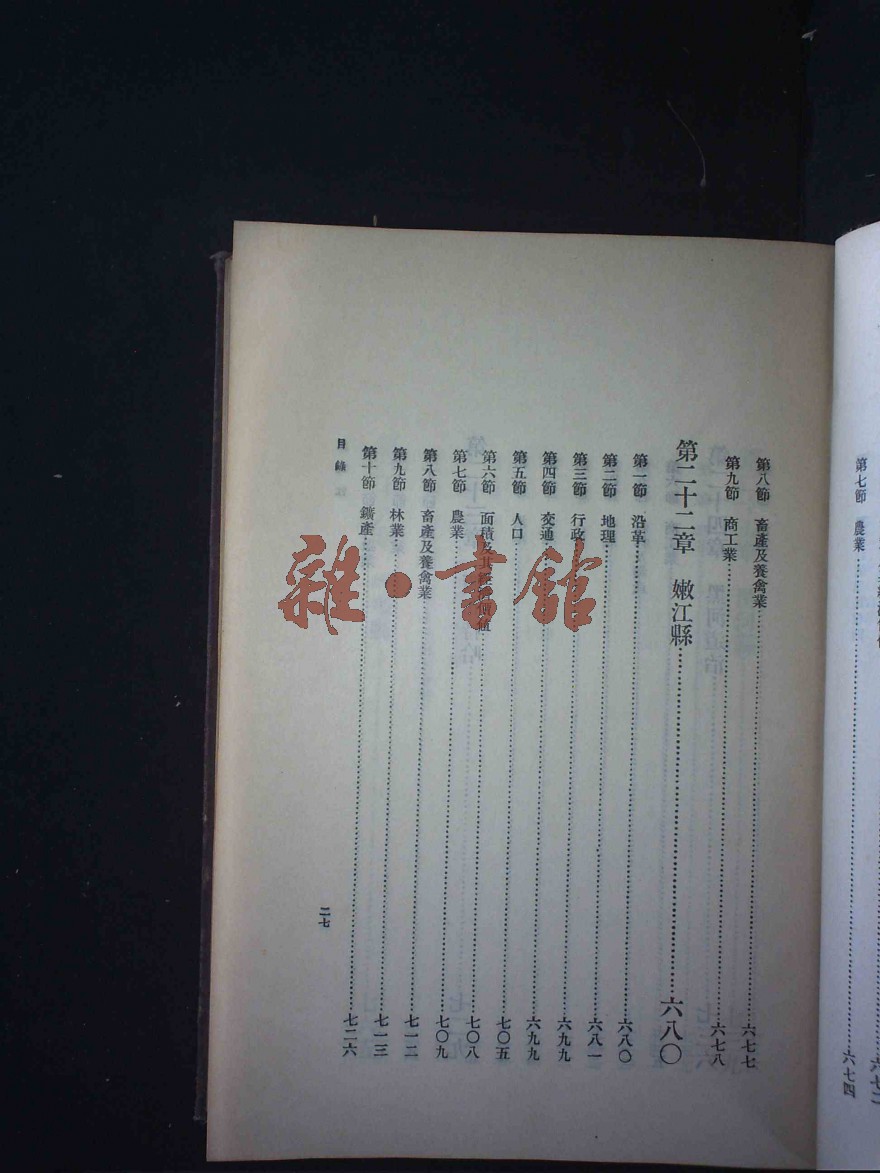 第七節　農業……六七四
第八節　畜產及養禽業……六七七
第九節　商工業……六七八
第二十二章　嫩江縣……六八〇
第一節　沿革……六八〇
第二節　地理……六八一
第三節　行政……六九九
第四節　交通……六九九
第五節　人口……七〇五
第六節　面積及其經濟價值……七〇八
第七節　農業……七〇九
第八節　畜產及養禽業……七一二
第九節　林業……七一三
第十節　鑛產……七二六
目錄
二七
雜·書館